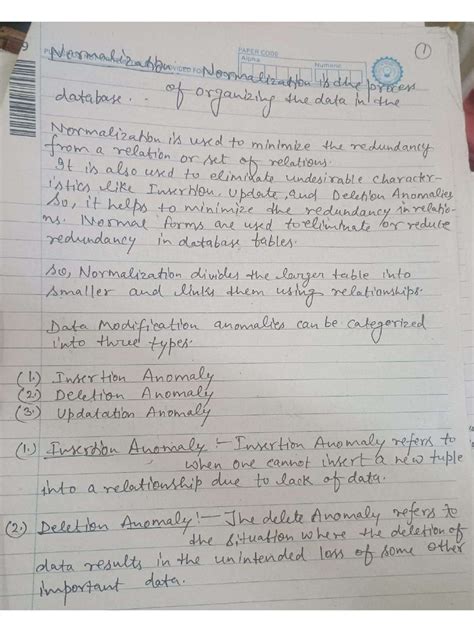 PAPER CODE
Alpha Numeric
1
Normalization Normalization is the process
of organizing the data in the
database..
Normalization is used to minimize the redundancy
from a relation or set of relations.
It is also used to eliminate undesirable character-
istics like Insertion, Update, and Deletion Anomalies
So, it helps to minimize the redundancy in relatio-
ns. Normal forms are used to eliminate or reduce
redundancy in database tables.
So, Normalization divides the larger table into
smaller and links them using relationships.
Data Modification anomalies can be categorized
into three types.
(1.) Insertion Anomaly
(2) Deletion Anomaly
(3. Updatation Anomaly
(1.) Insertion Anomaly :- Insertion Anomaly refers to
when one cannot insert a new tuple
into a relationship due to lack of data.
(2.) Deletion Anomaly :- The delete Anomaly refers to
the situation where the deletion of
data results in the unintended loss of some other
important data.